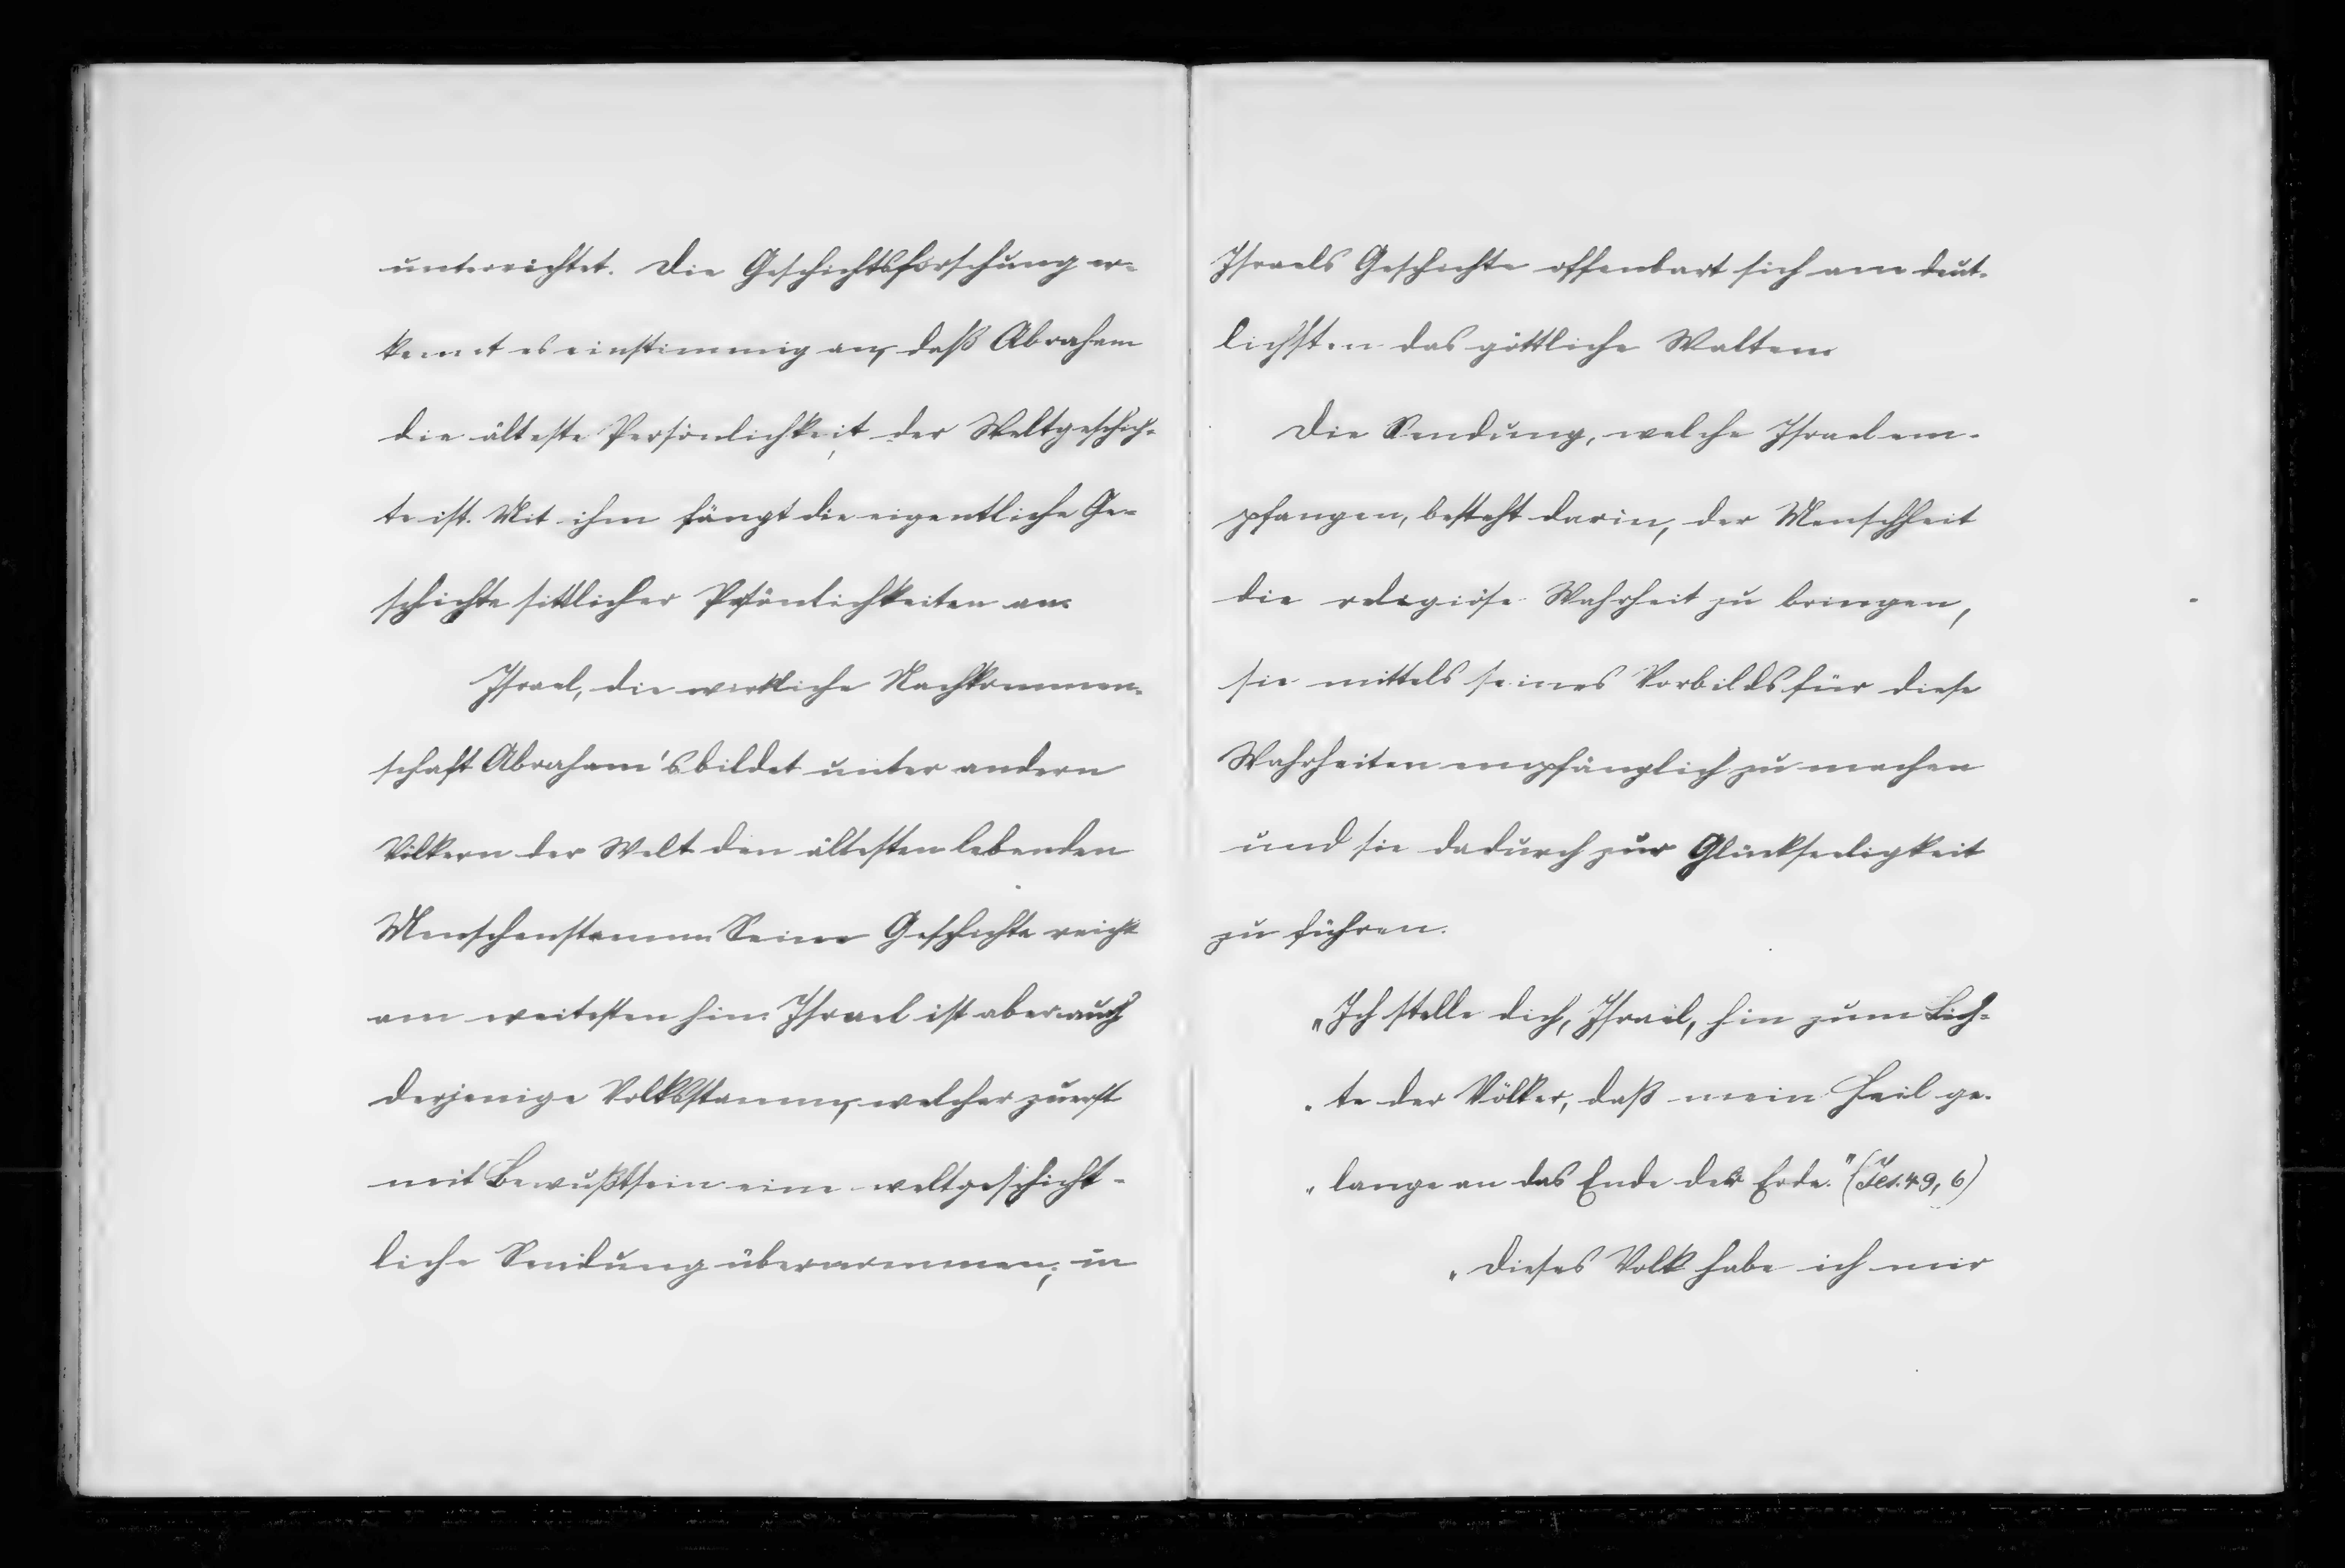 unterrichtet. Die Geschichtsforschung er-
kennt es einstimmig an, daß Abraham
die älteste Persönlichkeit der Weltgeschich-
te ist. Mit ihm fängt die eigentliche Ge-
schichte sittlicher Persönlichkeiten an.
Israel, die wirkliche Nachkommen-
schaft Abraham's bildet unter andern
Völkern der Welt den ältesten lebenden
Menschenstamm. Seine Geschichte reicht
am weitesten hin. Israel ist aber auch
derjenige Volksstamm, welcher zuerst
mit Bewußtsein eine weltgeschicht-
liche Sendung übernommen; in
Israels Geschichte offenbart sich am deut-
lichsten das göttliche Walten.
Die Sendung, welche Israel em-
pfangen, besteht darin, der Menschheit
die religiöse Wahrheit zu bringen,
sie mittels seines Vorbilds für diese
Wahrheiten empfänglich zu machen
und sie dadurch zur Glückseeligkeit
zu führen.
„Ich stelle dich, Israel, hin zum Lich-
„te der Völker, daß mein Heil ge-
„lange an das Ende der Erde." (Jes. 49, 6)
„Dieses Volk habe ich mir